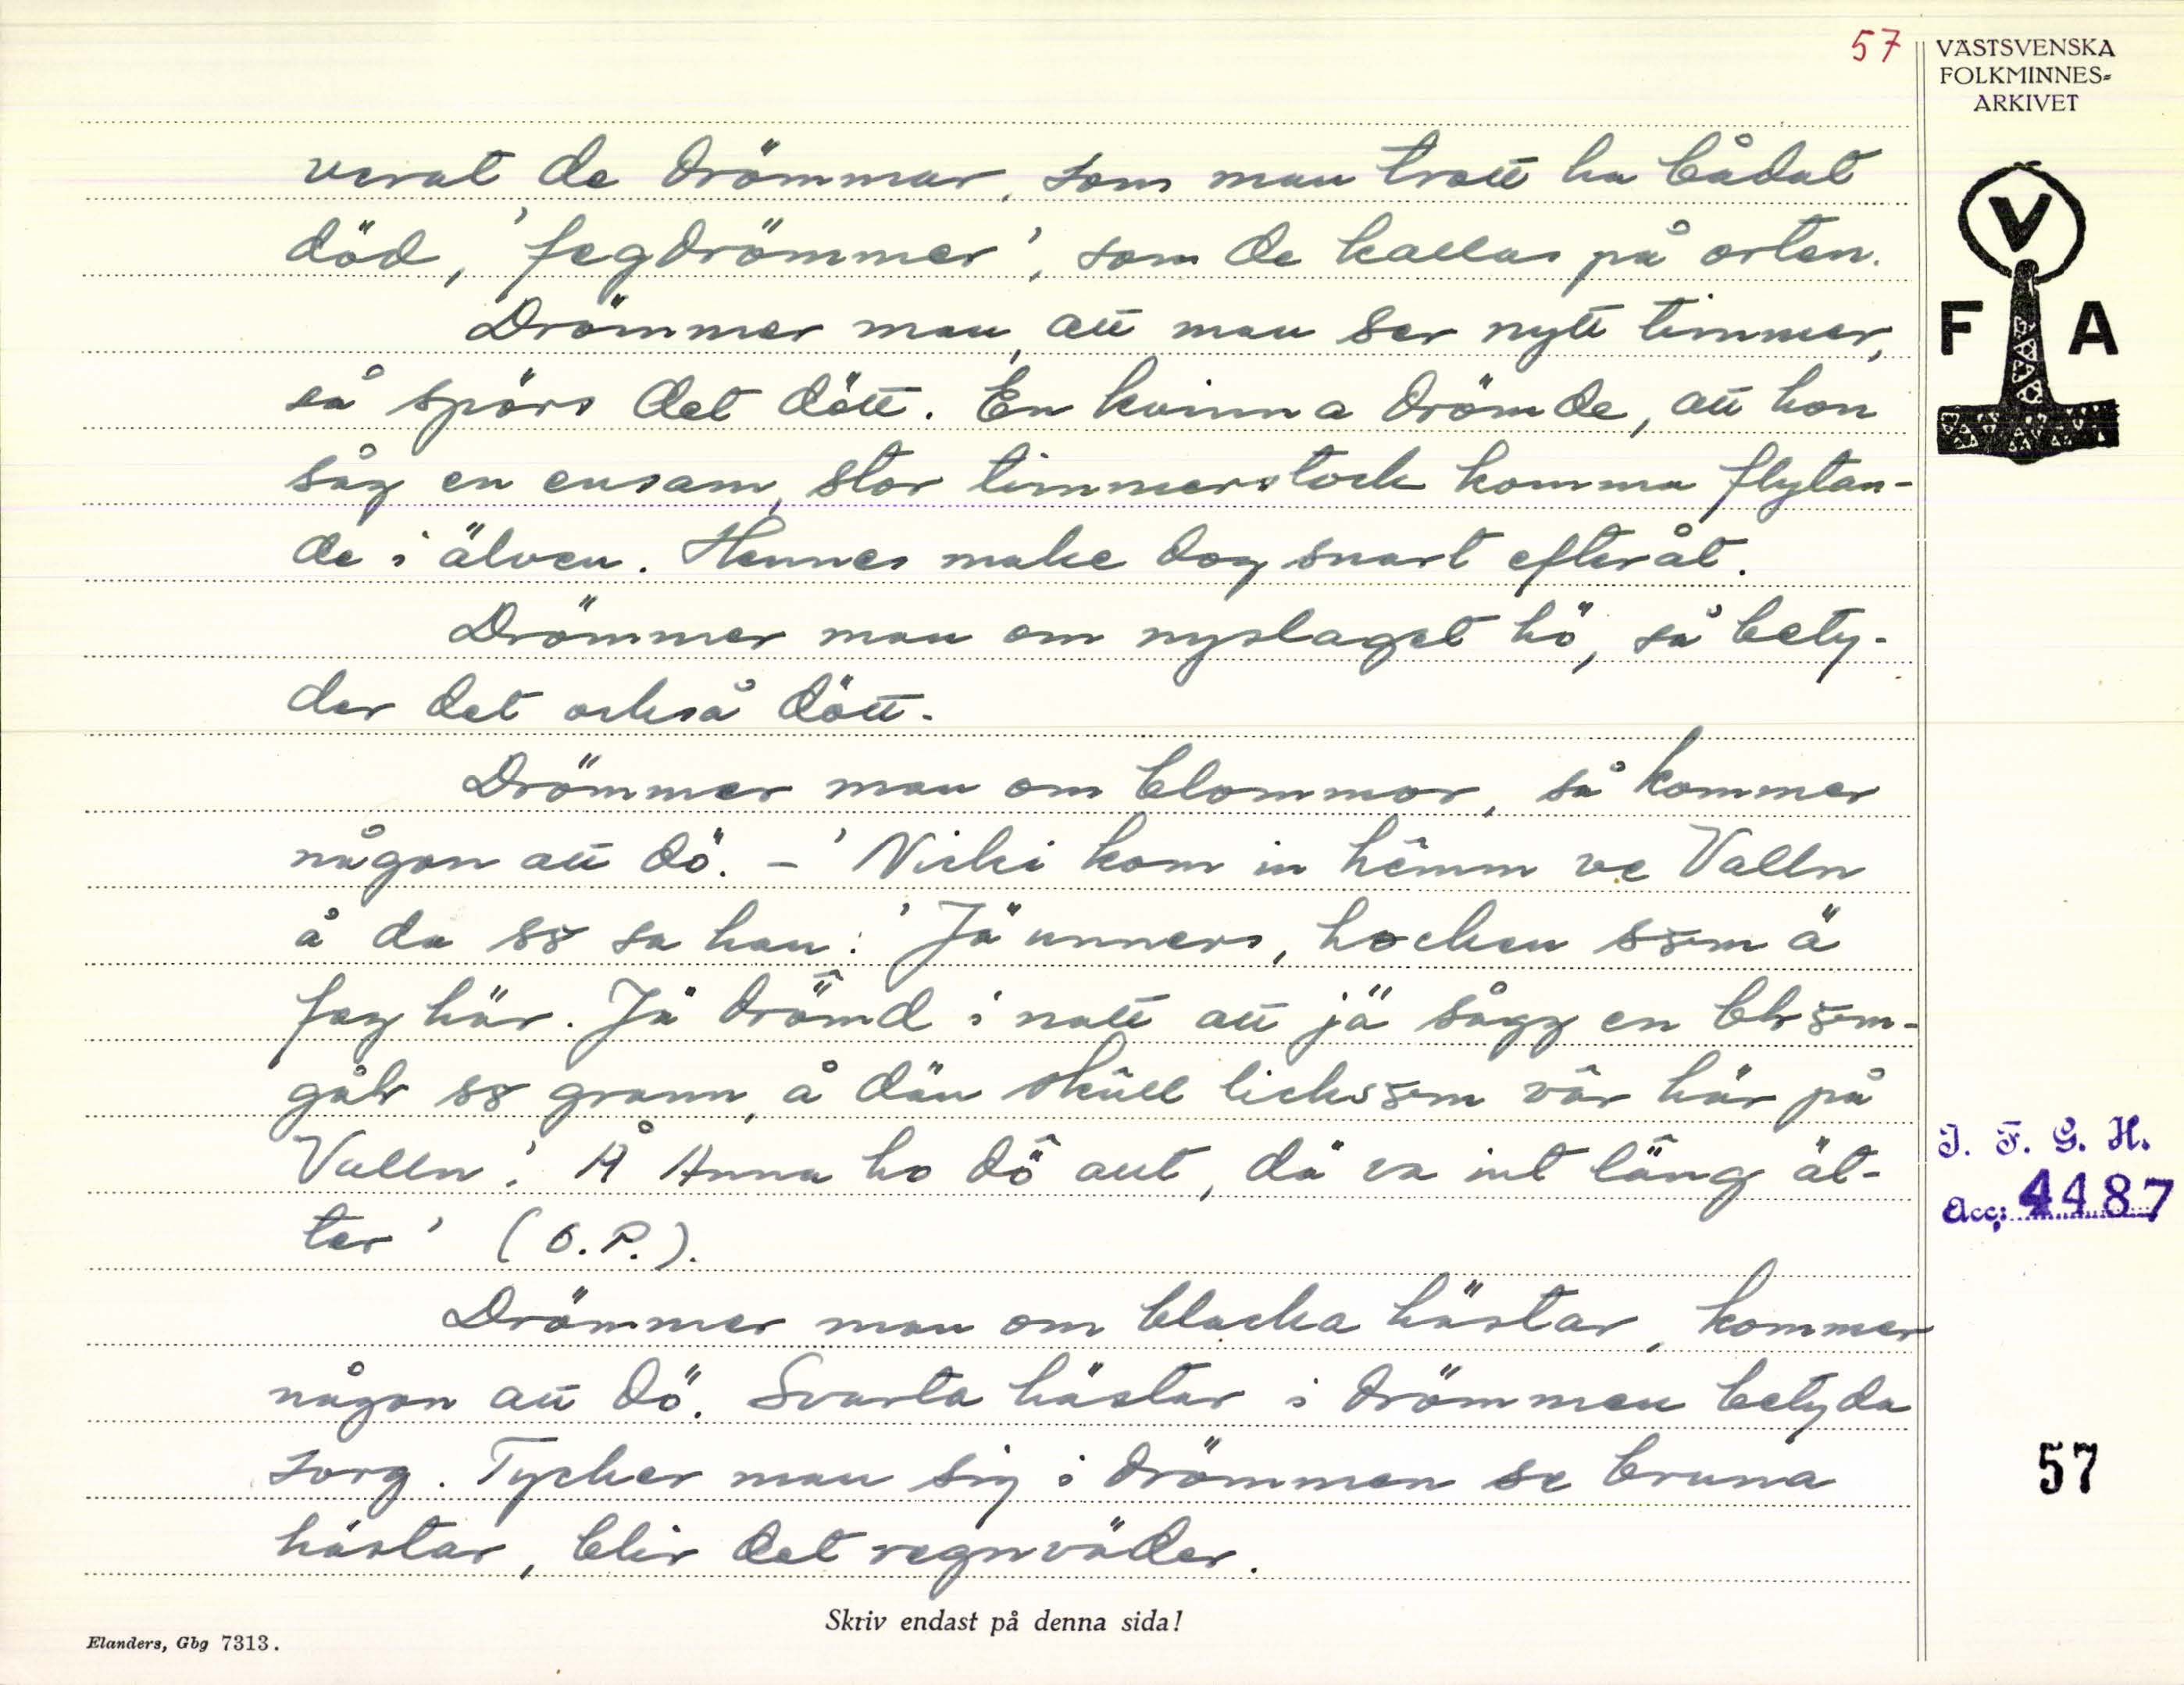 57
VÄSTSVENSKA
FOLKMINNES=
ARKIVET
V
F A
verat de drömmar, som man trott ha bådat
död, 'fegdrömmer', som de kallas på orten.
Drömmer man, att man ser nytt timmer,
så spörs det dött. En kvinna drömde, att hon
såg en ensam, stor timmerstock komma flytan-
de i älven. Hennes make dog snart efteråt.
Drömmer man om nyslaget hö, så bety-
der det också dött.
Drömmer man om blommor, så kommer
någon att dö. – 'Nicki kom in hêmm ve Valln
å da sa han: 'Jä unners, hocken ä
fäg här. Jä drömd i natt att jä sågg en
grann, å dän skûll vâr här på
Valln'. Å Anna ho dô aut, dä va int lâng ät-
ter' (O.P.).
Drömmer man om blacka hästar, kommer
någon att dö. Svarta hästar i drömmen betyda
sorg. Tycker man sig i drömmen se bruna
hästar, blir det regnväder.
I. F. G. H.
Acc: 4487
57
Skriv endast på denna sida!
Elanders, Gbg 7313.